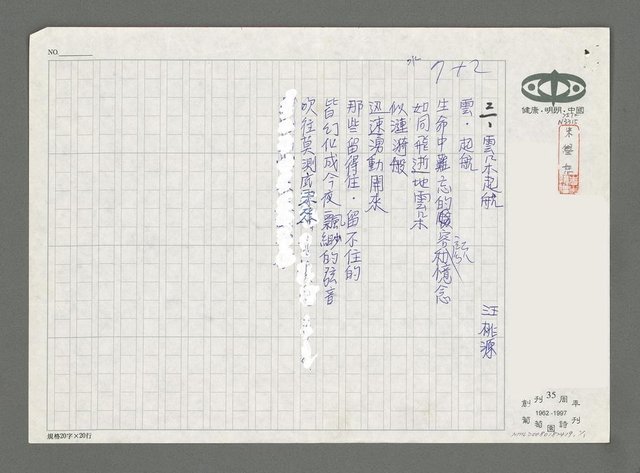 NO.
水 7+2
三、雲朵起航 汪桃源
雲．起航
生命中難忘的臉容和憶念
如同飛逝地雲朵
似漣漪般
迅速湧動開來
那些留得住．留不住的
皆幻似成今夜飄緲的弦音
吹往莫測底
健康．明朗．中國
朱
創刊35周年
1962-1997
葡萄園詩刊
規格20字×20行